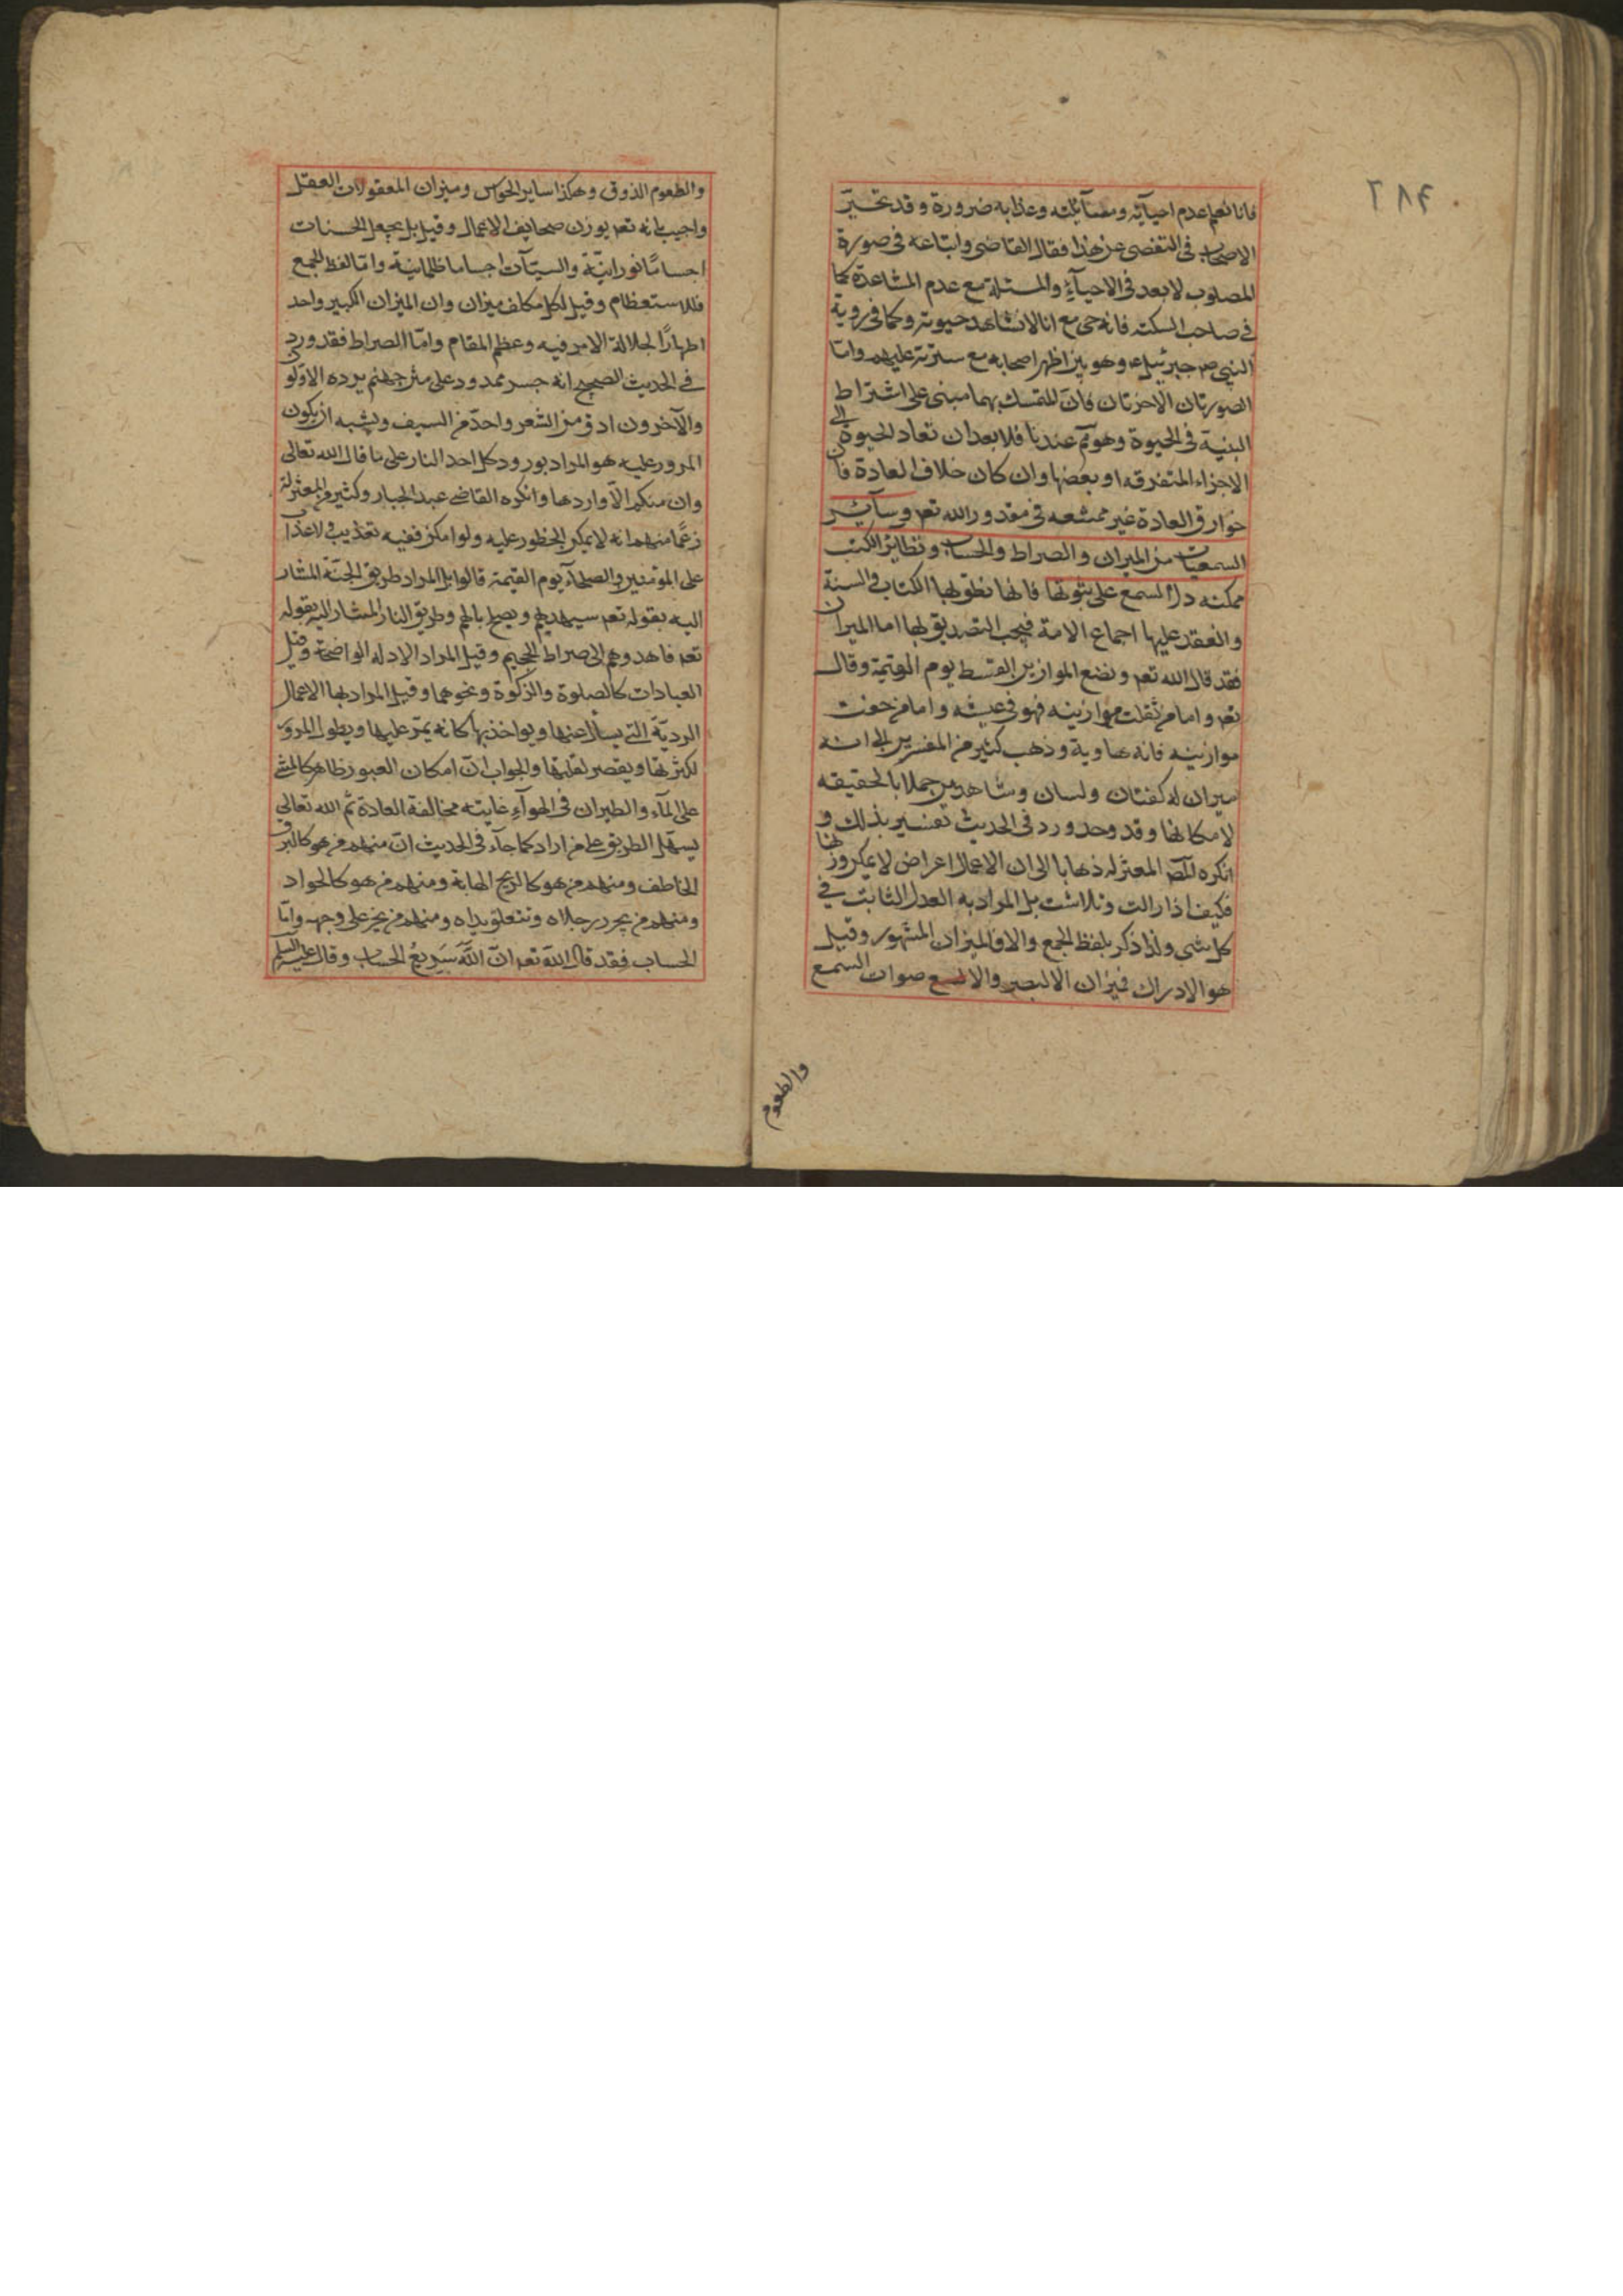 ٢٨٤
فانا نعلم عدم احيائه ومسائلته وعذابه ضرورة وقد تحير
الاصحاب فى التفصى عن هذا فقال القاضى واتباعه فى صورة
المصلوب لا بعد فى الاحياء والمسئلة مع عدم المشاهدة كما
فى صاحب السكته فانه حى مع انا لا نشاهد حيوته وكما فى روية
النبى صم جبرئيل ع وهو بين اظهر اصحابه مع سترته عليهم واما
الصورتان الاخرتان فان التمسك بهما مبنى على اشتراط
البنية فى الحيوة وهو مم عندنا فلا بعد ان تعاد الحيوة الى
الاجزاء المتفرقه او بعضها وان كان خلاف العادة فان
خوارق العادة غير ممتنعه فى مقدور الله تعم وسائر
السمعيات من الميزان والصراط والحساب وتطاير الكتب
ممكنه دل السمع على ثبوتها فانها نطق بها الكتاب والسنة
وانعقد عليها اجماع الامة فيجب التصديق بها اما الميزان
فقد قال الله تعم ونضع الموازين القسط يوم القيمة وقال
تعم واما من ثقلت موازينه فهو فى عيشه واما من خفت
موازينه فانه هاوية وذهب كثير من المفسرين الى انه
ميزان له كفتان ولسان وشاهين حملا بالحقيقه
لامكانها وقد ورد فى الحديث تفسير بذلك و
انكره المعتزله ذهابا الى ان الاعمال اعراض لا يمكن وزنها
فكيف اذا زالت وتلاشت بل المراد به العدل الثابت فى
كل شى ولذا ذكر بلفظ الجمع والا فالميزان المشهور وقيل
هو الادراك فميزان الالبصر والا صوات السمع
والطعوم
والطعوم الذوق وهكذا ساير الحواس وميزان المعقولات العقل
واجيب بانه تعم يوزن صحايف الاعمال وقيل بل يجعل الحسنات
اجسامًا نورانيّة والسيّآت اجساما ظلمانيّة وامّا لفظ الجمع
فللاستعظام وقيل لكل مكلف ميزان وان الميزان الكبير واحد
اظهارًا لجلالة الامر فيه وعظم المقام وامّا الصراط فقد ورد
فى الحديث الصحيح انه جسر ممدود على متن جهنم يرده الاوّلون
والآخرون ادق من الشعر واحدّ من السيف ويشبه ان يكون
المرور عليه هو المراد بورود كل احد النار على ما قال الله تعالى
وان منكم الّا واردها وانكره القاضى عبد الجبار وكثير من المعتزلة
زعمًا منهم انه لا يمكن الخطور عليه ولو امكن ففيه تعذيب ولا عذاب
على المؤمنين والصلحآء يوم القيمة قالوا بل المراد طريق الجنّة المشار
اليه بقوله تعم سيهديهم ويصلح بالهم وطريق النار المشار اليه بقوله
تعم فاهدوهم الى صراط الجحيم وقيل المراد الادلة الواضحة وقيل
العبادات كالصلوة والزكوة ونحوهما وقيل المراد بها الاعمال
الرديّة التى يسال عنها ويواخذ بها كانه يمرّ عليها ويطول المرور
لكثرتها ويقصر لقلتها والجواب انّ امكان العبور ظاهر كالمشى
على المآء والطيران فى الهوآء غايته مخالفة العادة ثم الله تعالى
يسهّل الطريق على من اراد كما جآء فى الحديث انّ منهم من هو كالبرق
الخاطف ومنهم من هو كالريح الهابة ومنهم من هو كالجواد
ومنهم من يجرد رجلاه وتتعلق يداه ومنهم من يخر على وجهه وامّا
الحساب فقد قال الله تعم انّ الله سَرِيعُ الحساب وقال عليه السلم